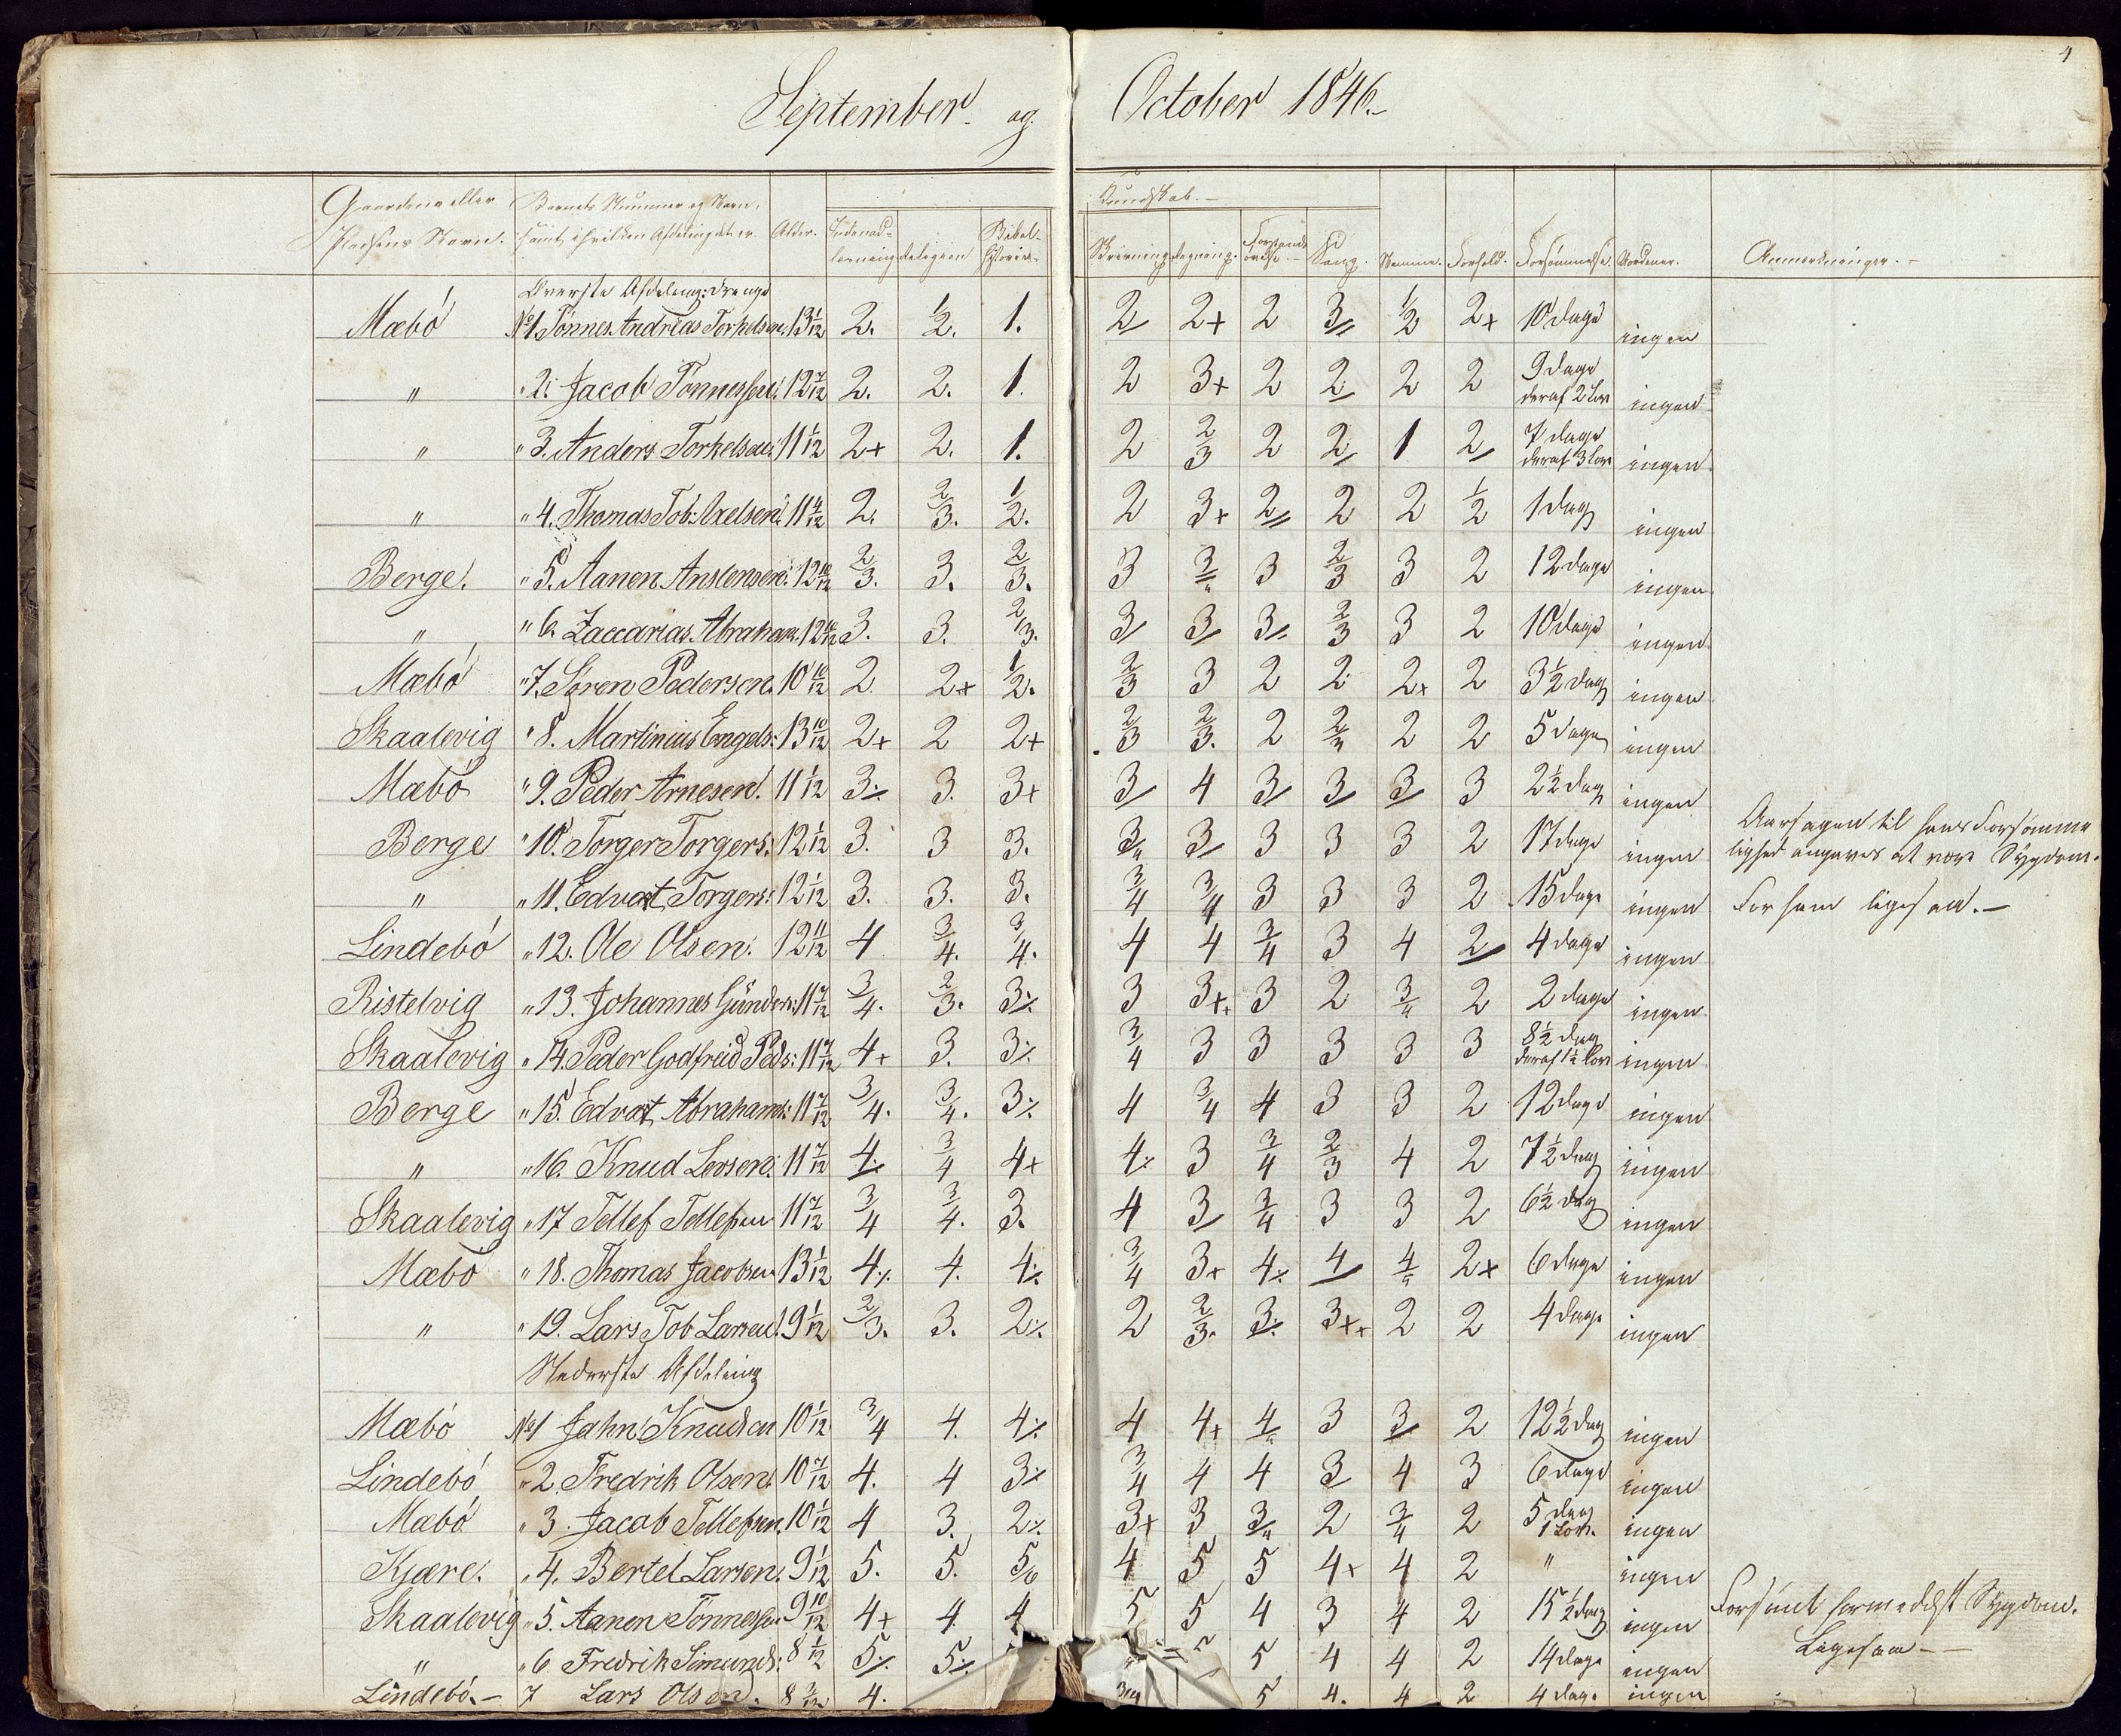 4
September og October 1846.
Gaardens eller Pladsens Navn. Barnets Nummer og Navn, samt i hvilken Afdeling det er. Alder. Udenad-læsning Religion Bibel-historie Kundskab.- Skrivning Regning. Forstands øvelse.- Sang. Nemme. Forhold. Forsømmelse. Anmerkninger.-
Øverste Afdeling: Drenge
Mæbö No 1. Tönnes Andreas Torkelsen. 13 1/12 2. 1/2. 1. 2/ 2+ 2 3// 1/2 2+ 10 dage ingen
" " 2. Jacob Tönnessen. 12 7/12 2. 2. 1. 2 3+ 2 2/ 2 2 9 dage deraf 2 Lov ingen
" " 3. Anders Torkelsen. 11 1/12 2+ 2. 1. 2 2/3 2 2/ 1 2/ 7 dage deraf 3 Lov ingen
" " 4. Thomas Tob: Axelsen. 11 4/12 2. 2/3. 1/2. 2 3+ 2// 2 2 1/2 1 dag ingen
Berge. " 5. Aanen Anstensen. 12 10/12 2/3. 3. 2/3. 3 3// 3 2/3 3 2 12 dage ingen
" " 6. Zaccarias Abraham. 12 10/12 3. 3. 2/3. 3/ 3/ 3/. 2/3 3 2 10 dage ingen
Mæbö " 7. Sören Pedersen. 10 10/12 2. 2+ 1/2. 2/3 3 2 2 2+ 2 3 1/2 dag ingen
Skaalevig " 8. Martinius Engels: 13 10/12 2+ 2 2+ 2/3 2/3. 2 2/3 2 2 5 dage ingen
Mæbö " 9. Peder Arnesen. 11 1/12 3./. 3. 3+ 3/ 4 3/ 3/ 3/ 3 2 1/2 dag ingen
Berge " 10. Torger Torgers: 12 1/12 3. 3 3. 3/" 3/ 3 3 3 2 17 dage ingen Aarsagen til hans Forsømme
lighed angaves at være Sygdom.
" " 11. Edvart Torgers: 12 1/12 3. 3. 3. 3/4 3/4 3 3 3 2 15 dage ingen For ham ligesaa.-
Lindebö " 12. Ole Olsen. 12 11/12 4 3/4. 3/4. 4 4 3/4 3 4 2/ 4 dage ingen
Ristelvig " 13. Johannes Gunders: 11 7/12 3/4. 2/3. 3./. 3 3++ 3 2 3/" 2 2 dage ingen
Skaalevig " 14. Peder Godfreid Peds: 11 7/12 4+ 3. 3./. 3/4 3 3 3 3 3 8 1/2 dag deraf 1 1/2 Lov ingen
Berge " 15. Edvart Abrahams: 11 7/12 3/4. 3/4. 3./. 4 3/4 4 3 3 2 12 dage ingen
" " 16. Knud Lersen. 11 7/12 4./. 3/4 4+ 4./. 3 3/4 2/3 4 2 7 1/2 dag ingen
Skaalevig " 17 Tellef Tellefsen 11 7/12 3/4 3/4. 3. 4 3/ 3/4 3 3 2 6 1/2 dag ingen
Mæbö " 18. Thomas Jacobsen 13 1/12 4./. 4. 4./. 3/4 3+ 4./. 4/ 4/" 2+ 6 dage ingen
" " 19. Lars Tob Larsen. 9 1/12 2/3. 3. 2./. 2 2/3. 3./. 3++ 2 2 4 dage ingen
Nederste Afdeling
Mæbö No 1 Jahn Knudsen 10 1/12 3/4 4. 4./. 4 4+ 4/" 3 3/ 2 12 1/2 dag ingen
Lindebö " 2 Fredrik Olsen. 10 7/12 4. 4 3./. 3/4 4 4 3/ 4 3 6 dage ingen
Mæbö " 3. Jacob Tellefsen. 10 1/12 4 3. 2./. 3+ 3 3/" 2 3/4 2 5 dag 1 Lov. ingen
Kjære. " 4. Bertel Larsen. 9 1/12 5. 5. 5/6 4 5 5 4+ 4 2 " ingen
Skaalevig " 5. Aanen Tönnessen 9 10/12 4+ 4 4 5 5 4 3 4 2 15 1/2 dag ingen Forsömt formedelst Sygdom.
" " 6 Fredrik Simunds: 8 1/12 5./. 5./. 5 5 4 4 2 14 dage ingen Ligesaa-
Lindebö.- 7 Lars Olsen. 8 3/12 4. 3/4 5 4. 4 2 4 dage ingen